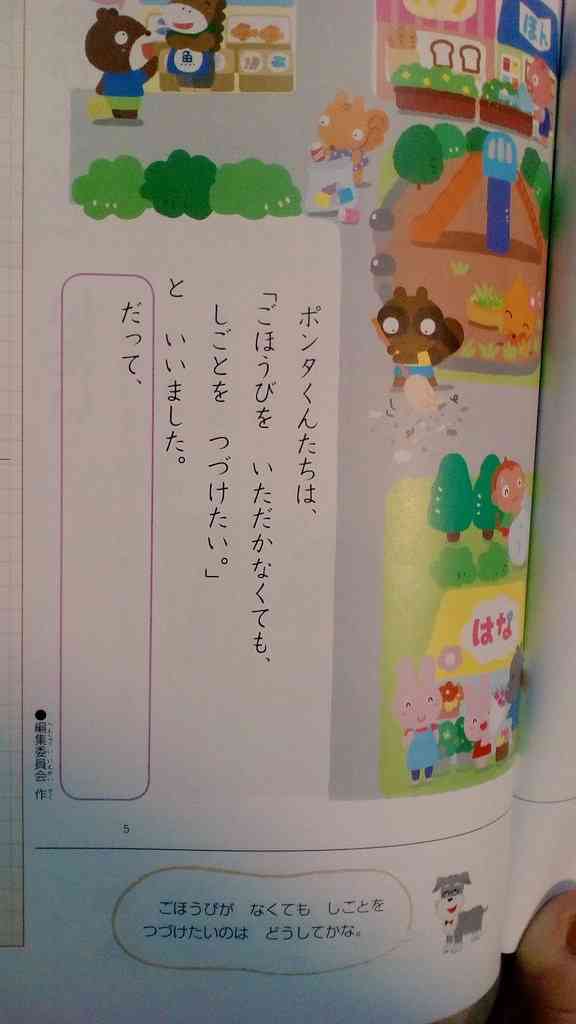 ほん
魚
はな
ポンタくんたちは、
「ごほうびを いただかなくても、
しごとを つづけたい。」
と いいました。
だって、
●編集委員会 作
へんしゅういいんかい さく
5
ごほうびが なくても しごとを
つづけたいのは どうしてかな。